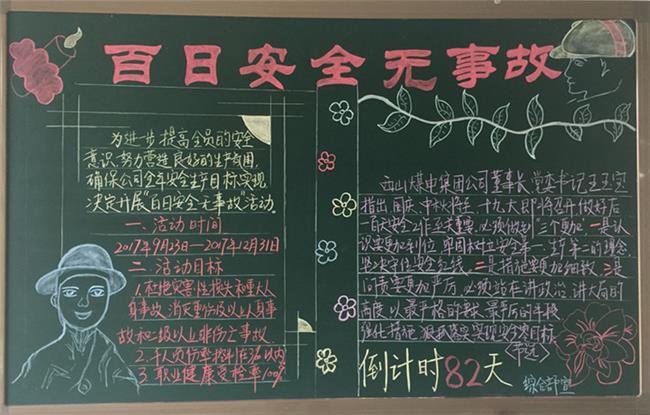 百日安全无事故
为进步提高全员的安全
意识,努力营造良好的生产氛围,
确保公司全年安全生产目标实现,
决定开展"百日安全无事故"活动。
一、活动时间
2017年9月23日—2017年12月31日
二、活动目标
1.杜绝灾害性损失和重大人
身事故,消灭重伤及以上人身事
故和二级以上非伤亡事故
2.千人负伤率控制在3‰以内
3.职业健康受检率100%
西山煤电集团公司董事长、党委书记王玉宝
指出,国庆、中秋将至,十九大即将召开,做好后
百天安全工作至关重要,必须做到"三个更加",一是认
识要更加到位,牢固树立安全第一、生产第二的理念,
坚决守住安全红线。二是措施要更加细致,三是
问责要更加严厉,必须站在讲政治、讲大局的
高度,以最严格的要求、最严厉的手段
强化措施,狠抓落实,实现安全零目标。
倒计时82天
综合部宣